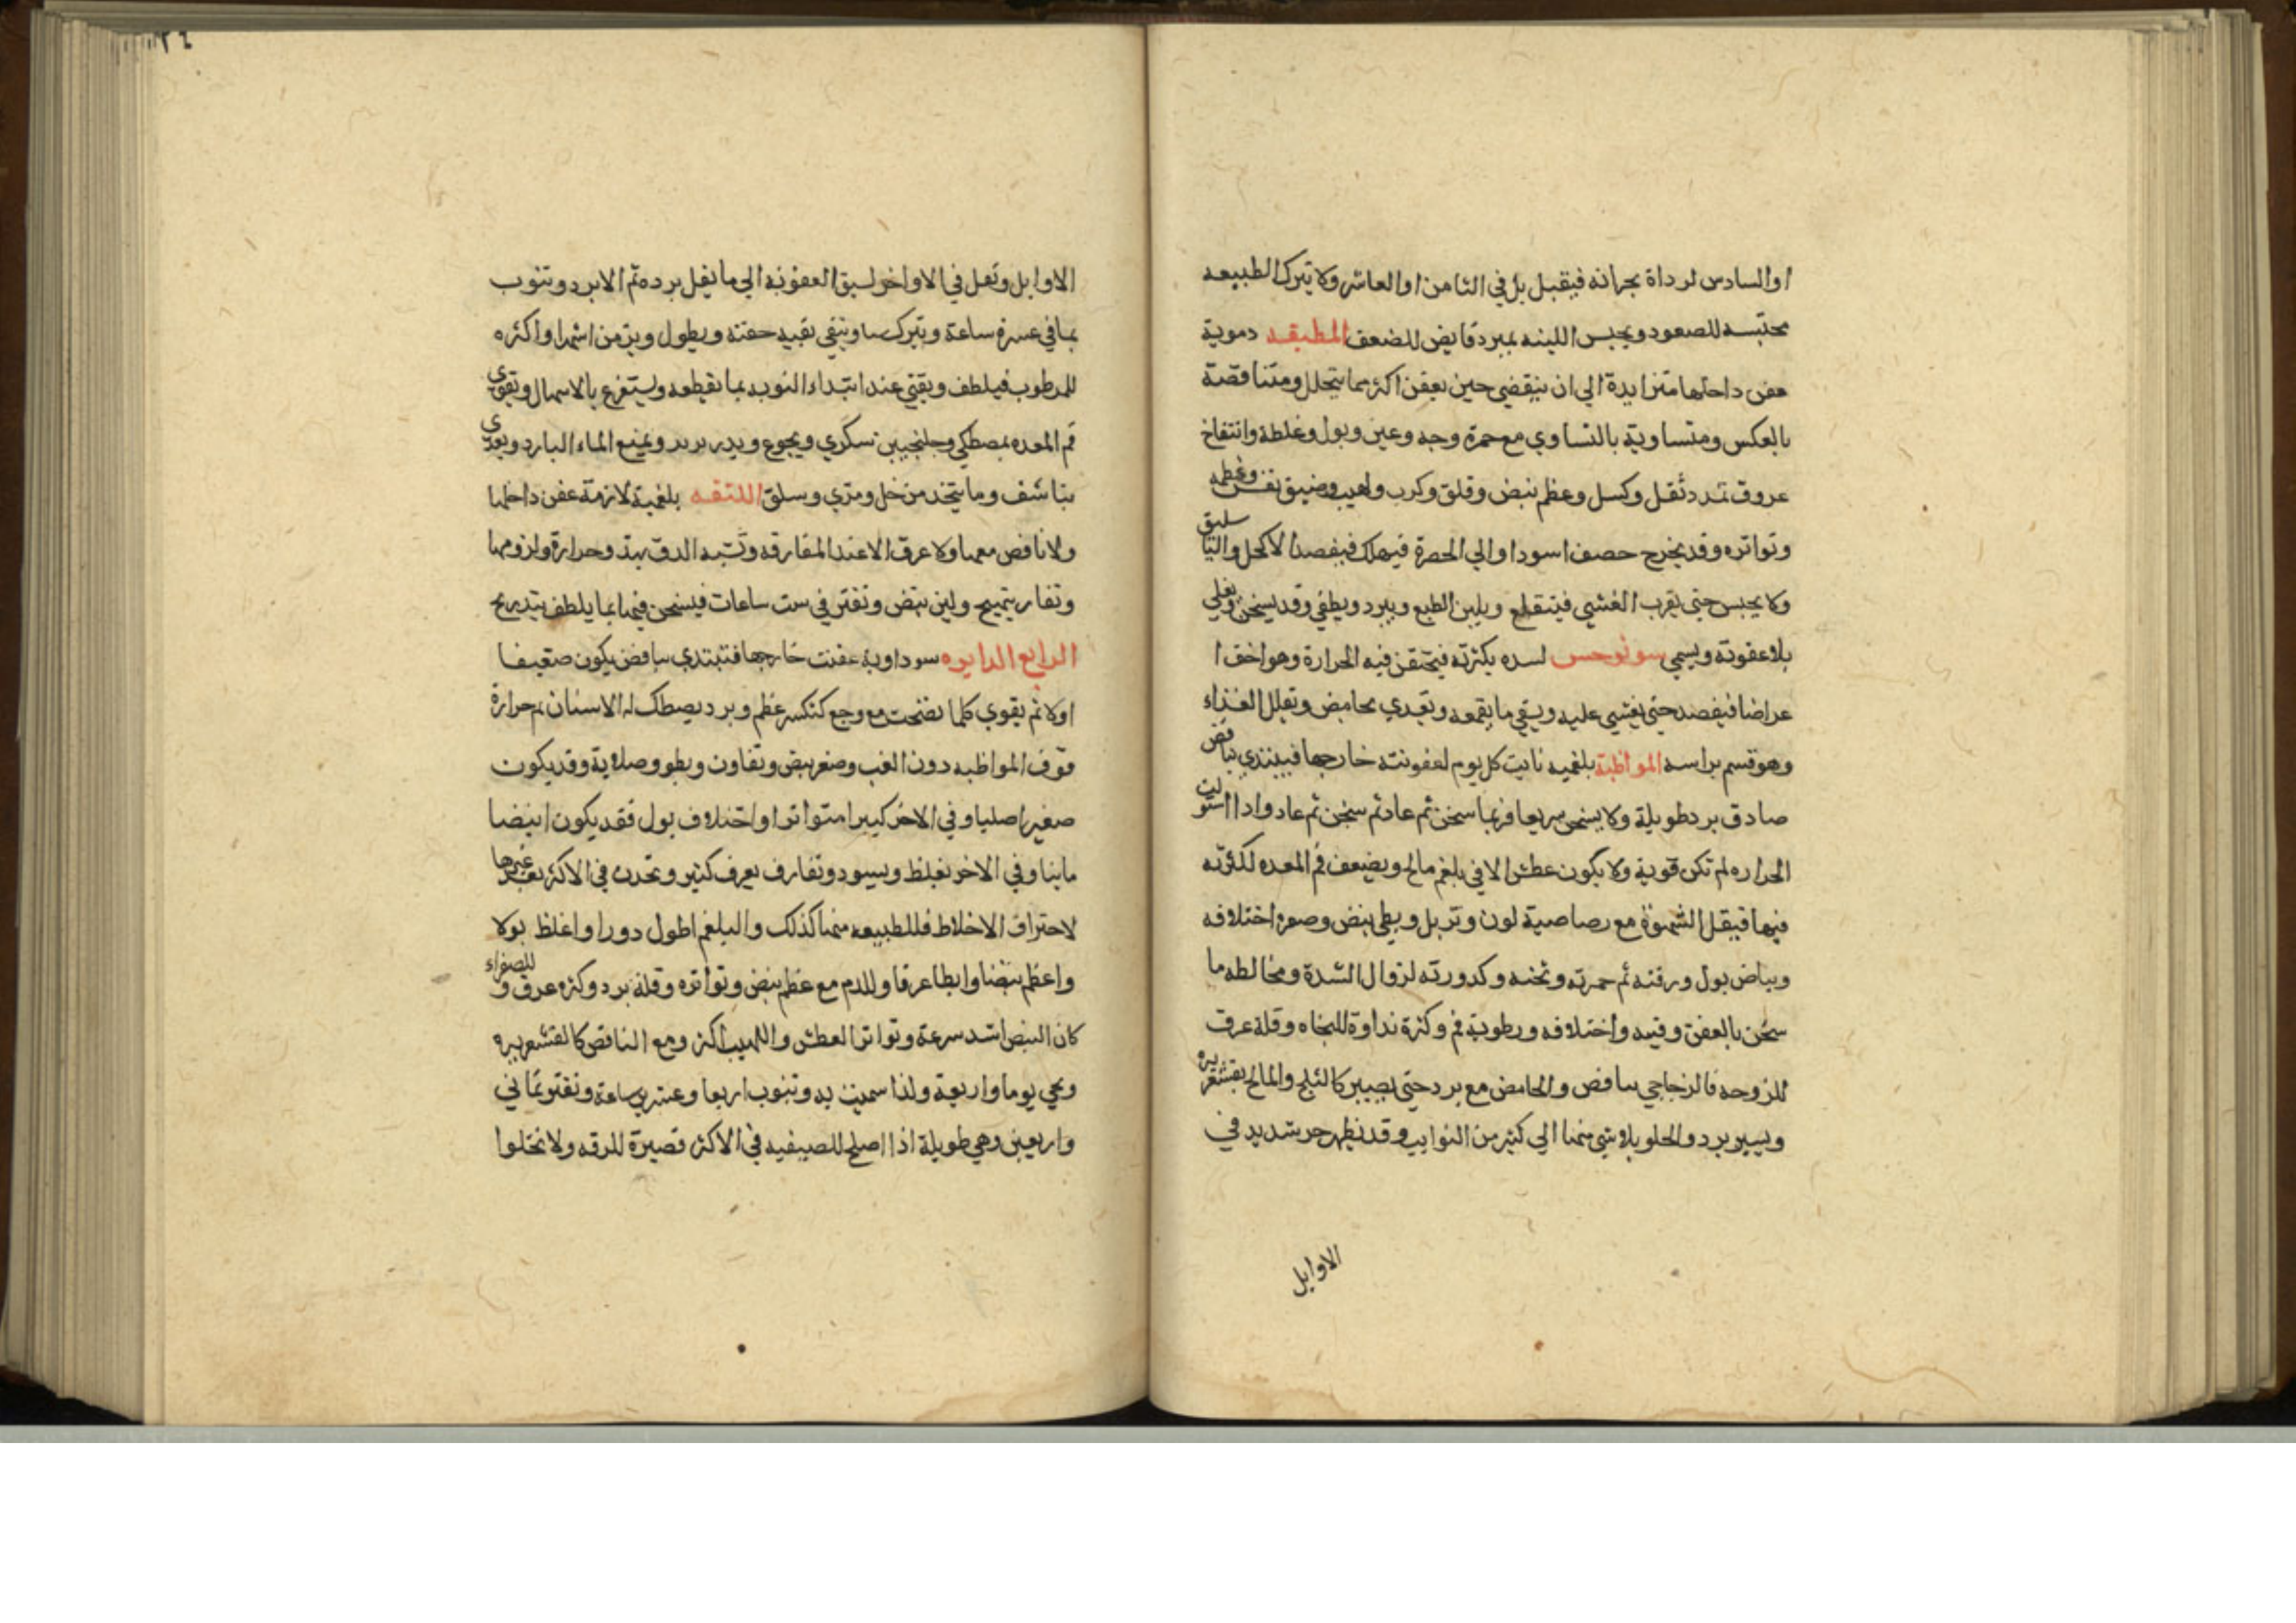 او السادس لرداة بحرانه فيقبل بل في الثامن او العاشر ولا يترك الطبيعه
محتبسه للصعود ويحبس اللينه بمبرد قابض للضعف المطبقه دموية
عفن داخلها متزايدة الي ان ينقضي حين يعفن اكثر مما يتحلل ومتناقصة
بالعكس ومتساوية بالتساوي مع حمرة وجه وعين وبول وغلظه وانتفاخ
عروق تمدد ثقل وكسل وعظم نبض وقلق وكرب ولهيب وضيق نفس وعظمه
وتواتره وقد يخرج حصف اسود او الي الحمرة فيهلك فيفصد الاكحل والباسليق
ولا يحبس حتي يقرب الغشي فينقلع ويلين الطبع ويبرد ويطفي وقد يسخن ويغلي
بلا عفونة ويسمي سونوخس لسده بكثرته فيحتقن فيه الحرارة وهو اخف ا
عراضا فيفصد حتي يغشي عليه ويسقي ما يقمعه ويغدي بحامض وتقلل الغذاء
وهو قسم براسه المواظبة بلغميه نابت كل يوم لعفونته خارجها فيبتدي بنافض
صادق برد طويلة ولا يسخن سريعا فربما سخن ثم عاد ثم سخن ثم عاد واذا استولت
الحراره لم تكن قوية ولا يكون عطش الا في بلغم مالح ويضعف فم المعده لكثرته
فيها فيقل الشهوة مع رصاصية لون وتربل وبطي نبض وصغره اختلافه
وبياض بول ورقته ثم حمرته وثخنه وكدورته لزوال الشدة ومخالطه ما
سخن بالعفن وقيه واختلافه ورطوبة فم وكثرة نداوة للبخاه وقلة عرق
للزوجه فالزجاجي بنافض والحامض مع برد حتي يصير كالثلج والمالح بقشعريره
ويسير برد والحلو بلا شي منها الي كثير من النوايب وقد يظهر حر شديد في
الاوايل
٢٤
الاوايل وتعل في الاواخر لسبق العفونة الي ما يقل برده ثم الابرد وتنوب
بما في عسرة ساعة وتترك ستا وينفي تقيد حفته ويطول ويزمن اشهرا واكثره
للمرطوب فيلطف ويقي عند ابتداء النوب بما يقطعه وليستفرغ بالاسهال وتقوي
فم المعده بمصطكي وجلنجبين سكري ويجوع ويدر ويمنع الماء البارد ويغدي
بناشف وما يتخذ من خل ومري وسلق اللثقه بلغمية لازمة عفن داخلها
ولا نافض معها ولا عرق الا عند المفارقه وتشبه الدق بهذ وحرارة ولزومها
وتفارق بتهيج ولين نبض وتفتر في ست ساعات فيسخن فيها بما يلطف بتدريج
الرابع الدايره سوداوية عفنت خارجها فتبتدي بنافض يكون ضعيفا
اولا ثم يقوي كلما نضجت مع وجع كتكسر عظم وبرد يصطك له الاسنان ثم حرارة
فوق المواظبه دون الغب وصغر نبض وتفاوت وبطو وصلابة وقد يكون
صغيرا صلبا وفي الاخر كبيرا متواترا واختلاف بول فقد يكون ابيضا
مايئا وفي الاخر تغلظ ويسود وتفارق بعرق كثير وتحدث في الاكثر بعد غيرها
لاحتراق الاخلاط فللطبيعه منها كذلك والبلغم اطول دورا واغلظ بولا
واعظم نبضا وابطا عرقا وللدم مع عظم نبض وتواتره وقلة برد وكثره عرق وللصفراء
كان النبض اشد سرعة وتواترا لعطش واللهيب اكثر ومع النافض كالقشعريره
ويجي يوما واربعة ولذا سميت به وتنوب اربعا وعشرين ساعة وتفتر ثماني
واربعين وهي طويلة اذا اصلح للصيفيه في الاكثر قصيرة للرقه ولا تخلوا